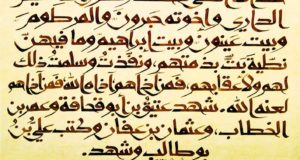 الداري واخوته حبرون والمرطوم
وبيت عينون وبيت ابراهيم وما فيهن
نطية بت بذمتهم ونفذت وسلمت ذلك
لهم ولاعقابهم، فمن آذاهم آذاه الله فمن آذاهم
لعنه الله. شهد عتيق بن ابو قحافة وعمر بن
الخطاب، وعثمان بن عفان وكتب علي بن
بو طالب وشهد.